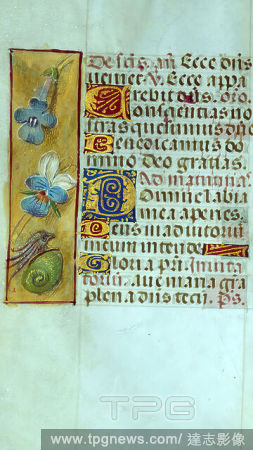 De sctis. añ Ecce dñs
veniet. V. Ecce appa
rebit dñs. oro.
Conscientias no
stras quesumus dñe
Benedicamus do
mino deo gratias.
Ad matutinas
Domine labia
mea aperies.
Deus in adiutoriū
meum intende
Gloria pr̄i. Invita
toriū. aue maria gra
plena dñs tecū. ps.
TPG
www.tpgnews.com/ 達志影像